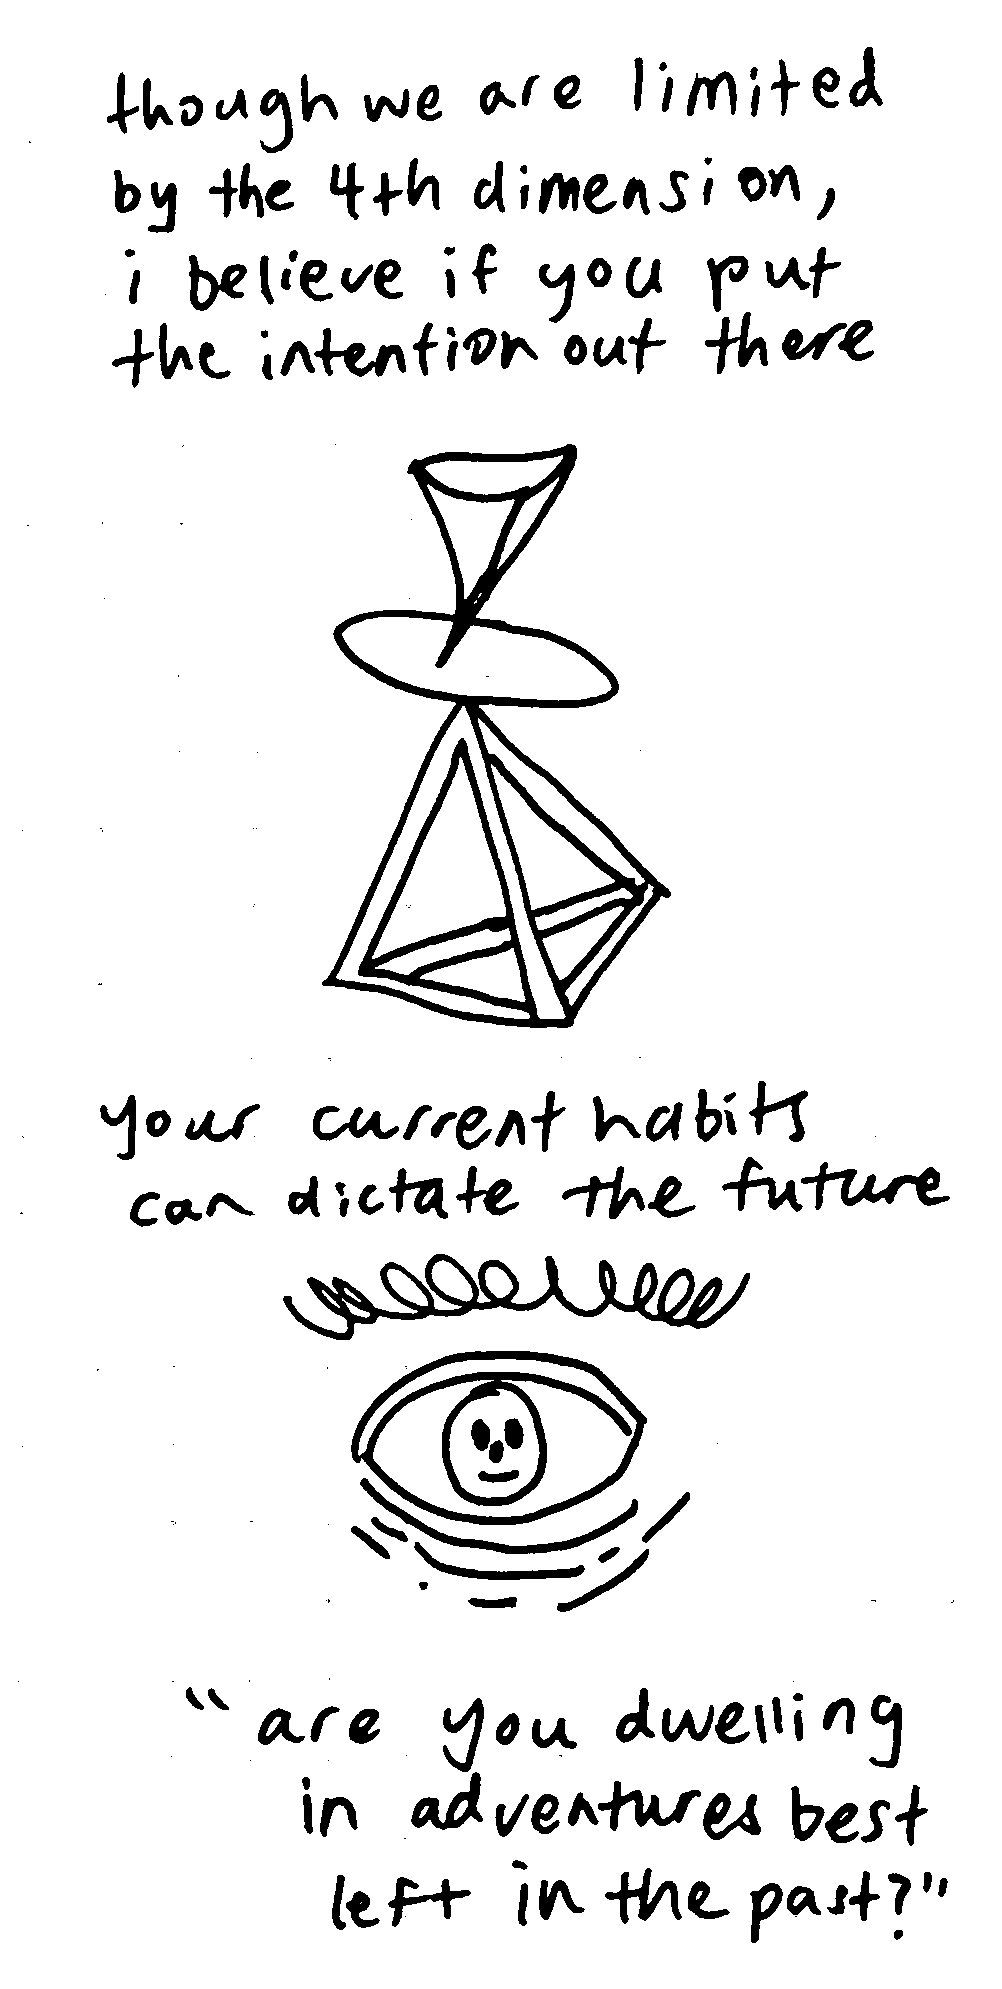 though we are limited
by the 4th dimension,
i believe if you put
the intention out there
your current habits
can dictate the future
“are you dwelling
in adventures best
left in the past?”